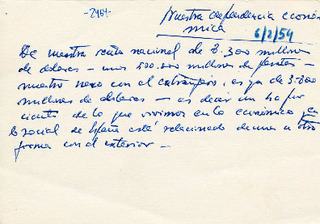 -2484-
Nuestra dependencia econó-
mica
6/2/59
De nuestra renta nacional de 8.300 millones
de dolares - unos 500.000 millones de pesetas -
nuestro nexo con el extranjero, es ya de 3.300
millones de dolares - es decir un por
ciento de lo que vivimos en lo económico y en
lo social de España está relacionado de una u otra
forma con el exterior -